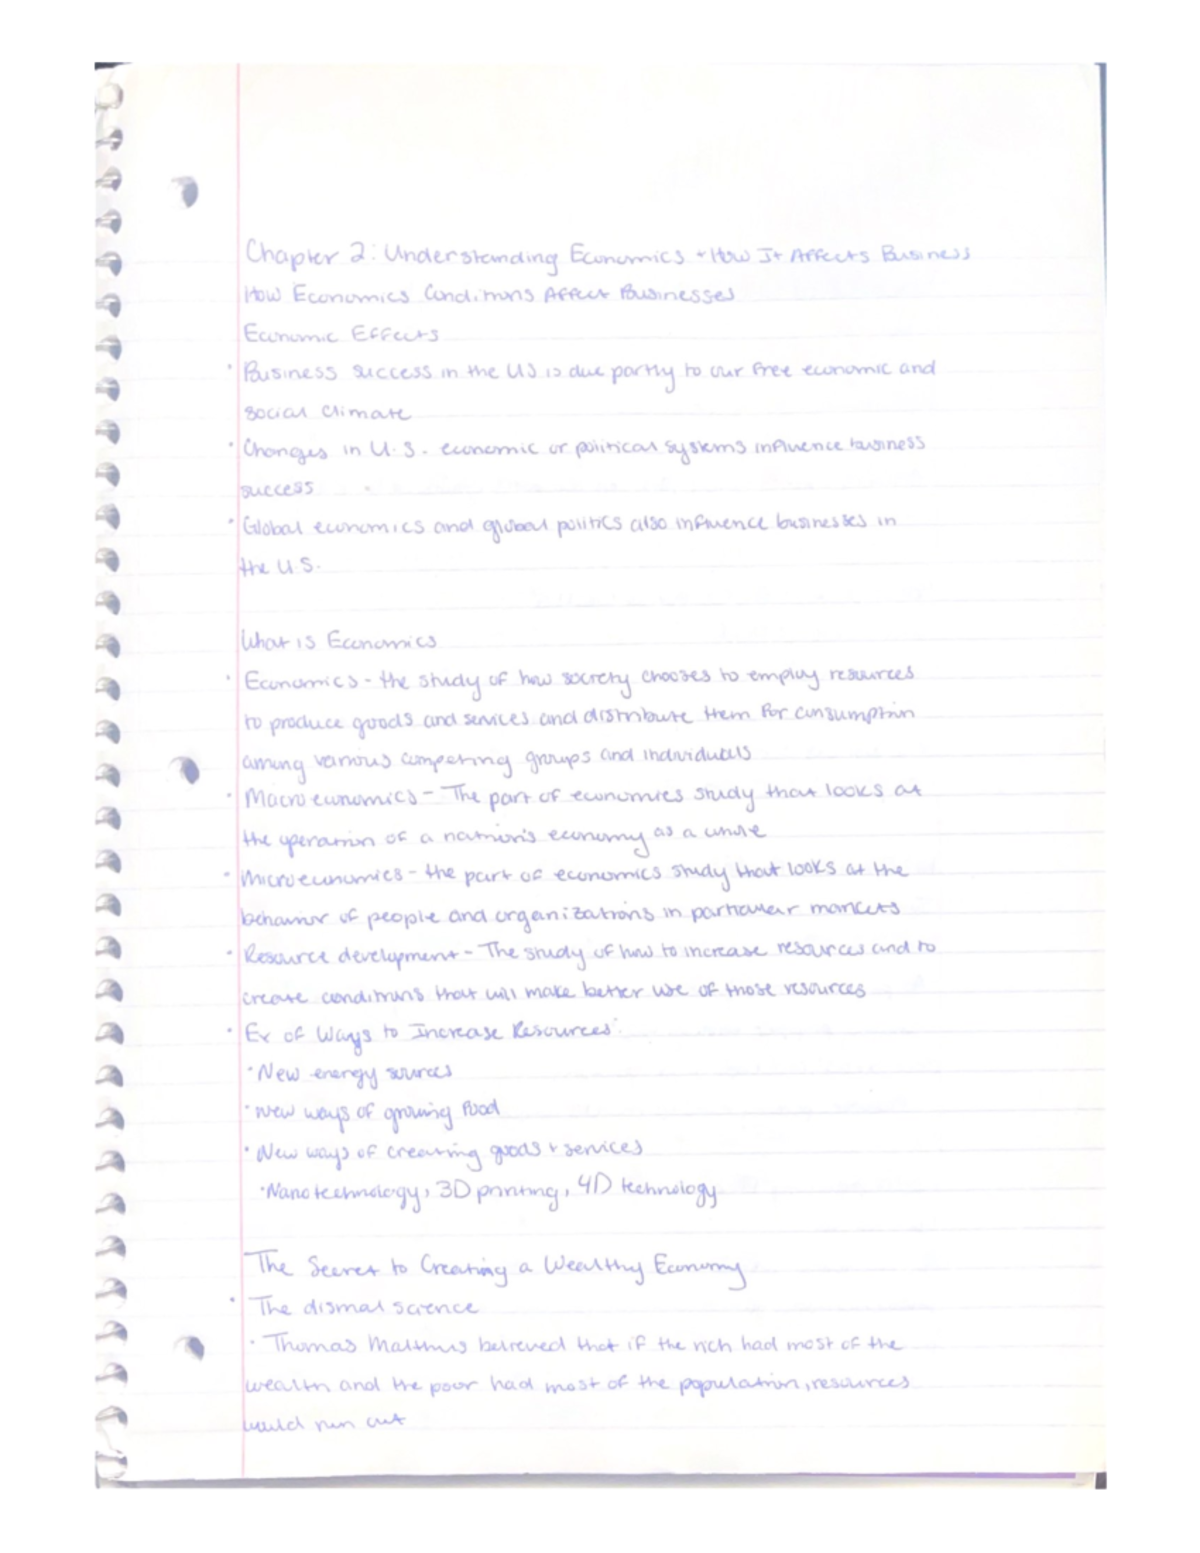 Chapter 2: Understanding Economics + How It Affects Business
How Economics Conditions Affect Businesses
Economic Effects
• Business success in the US is due partly to our free economic and
social climate
• Changes in U.S. economic or political systems influence business
success
• Global economics and global politics also influence businesses in
the U.S.
What is Economics
• Economics - the study of how society chooses to employ resources
to produce goods and services and distribute them for consumption
among various competing groups and individuals
• Macroeconomics - The part of economics study that looks at
the operation of a nation's economy as a whole
• Microeconomics - the part of economics study that looks at the
behavior of people and organizations in particular markets
• Resource development - The study of how to increase resources and to
create conditions that will make better use of those resources
• Ex of Ways to Increase Resources:
• New energy sources
• New ways of growing food
• New ways of creating goods + services
• Nanotechnology, 3D printing, 4D technology
The Secret to Creating a Wealthy Economy
• The dismal science
• Thomas Malthus believed that if the rich had most of the
wealth and the poor had most of the population, resources
would run out